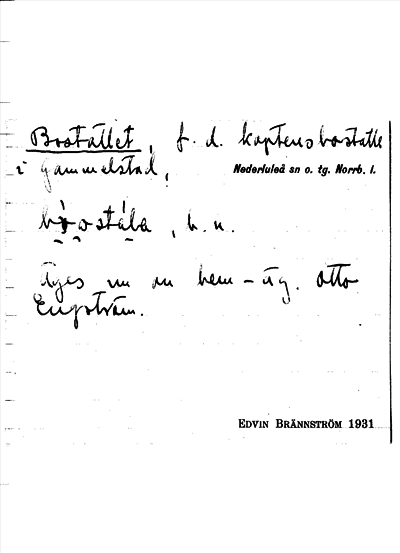 Bostället, f. d. kaptensboställe
i Gammelstad,
Nederluleå sn o. tg. Norrb. l.
bostála, b. n.
Äges nu av hem-äg. Otto
Engström.
EDVIN BRÄNNSTRÖM 1931